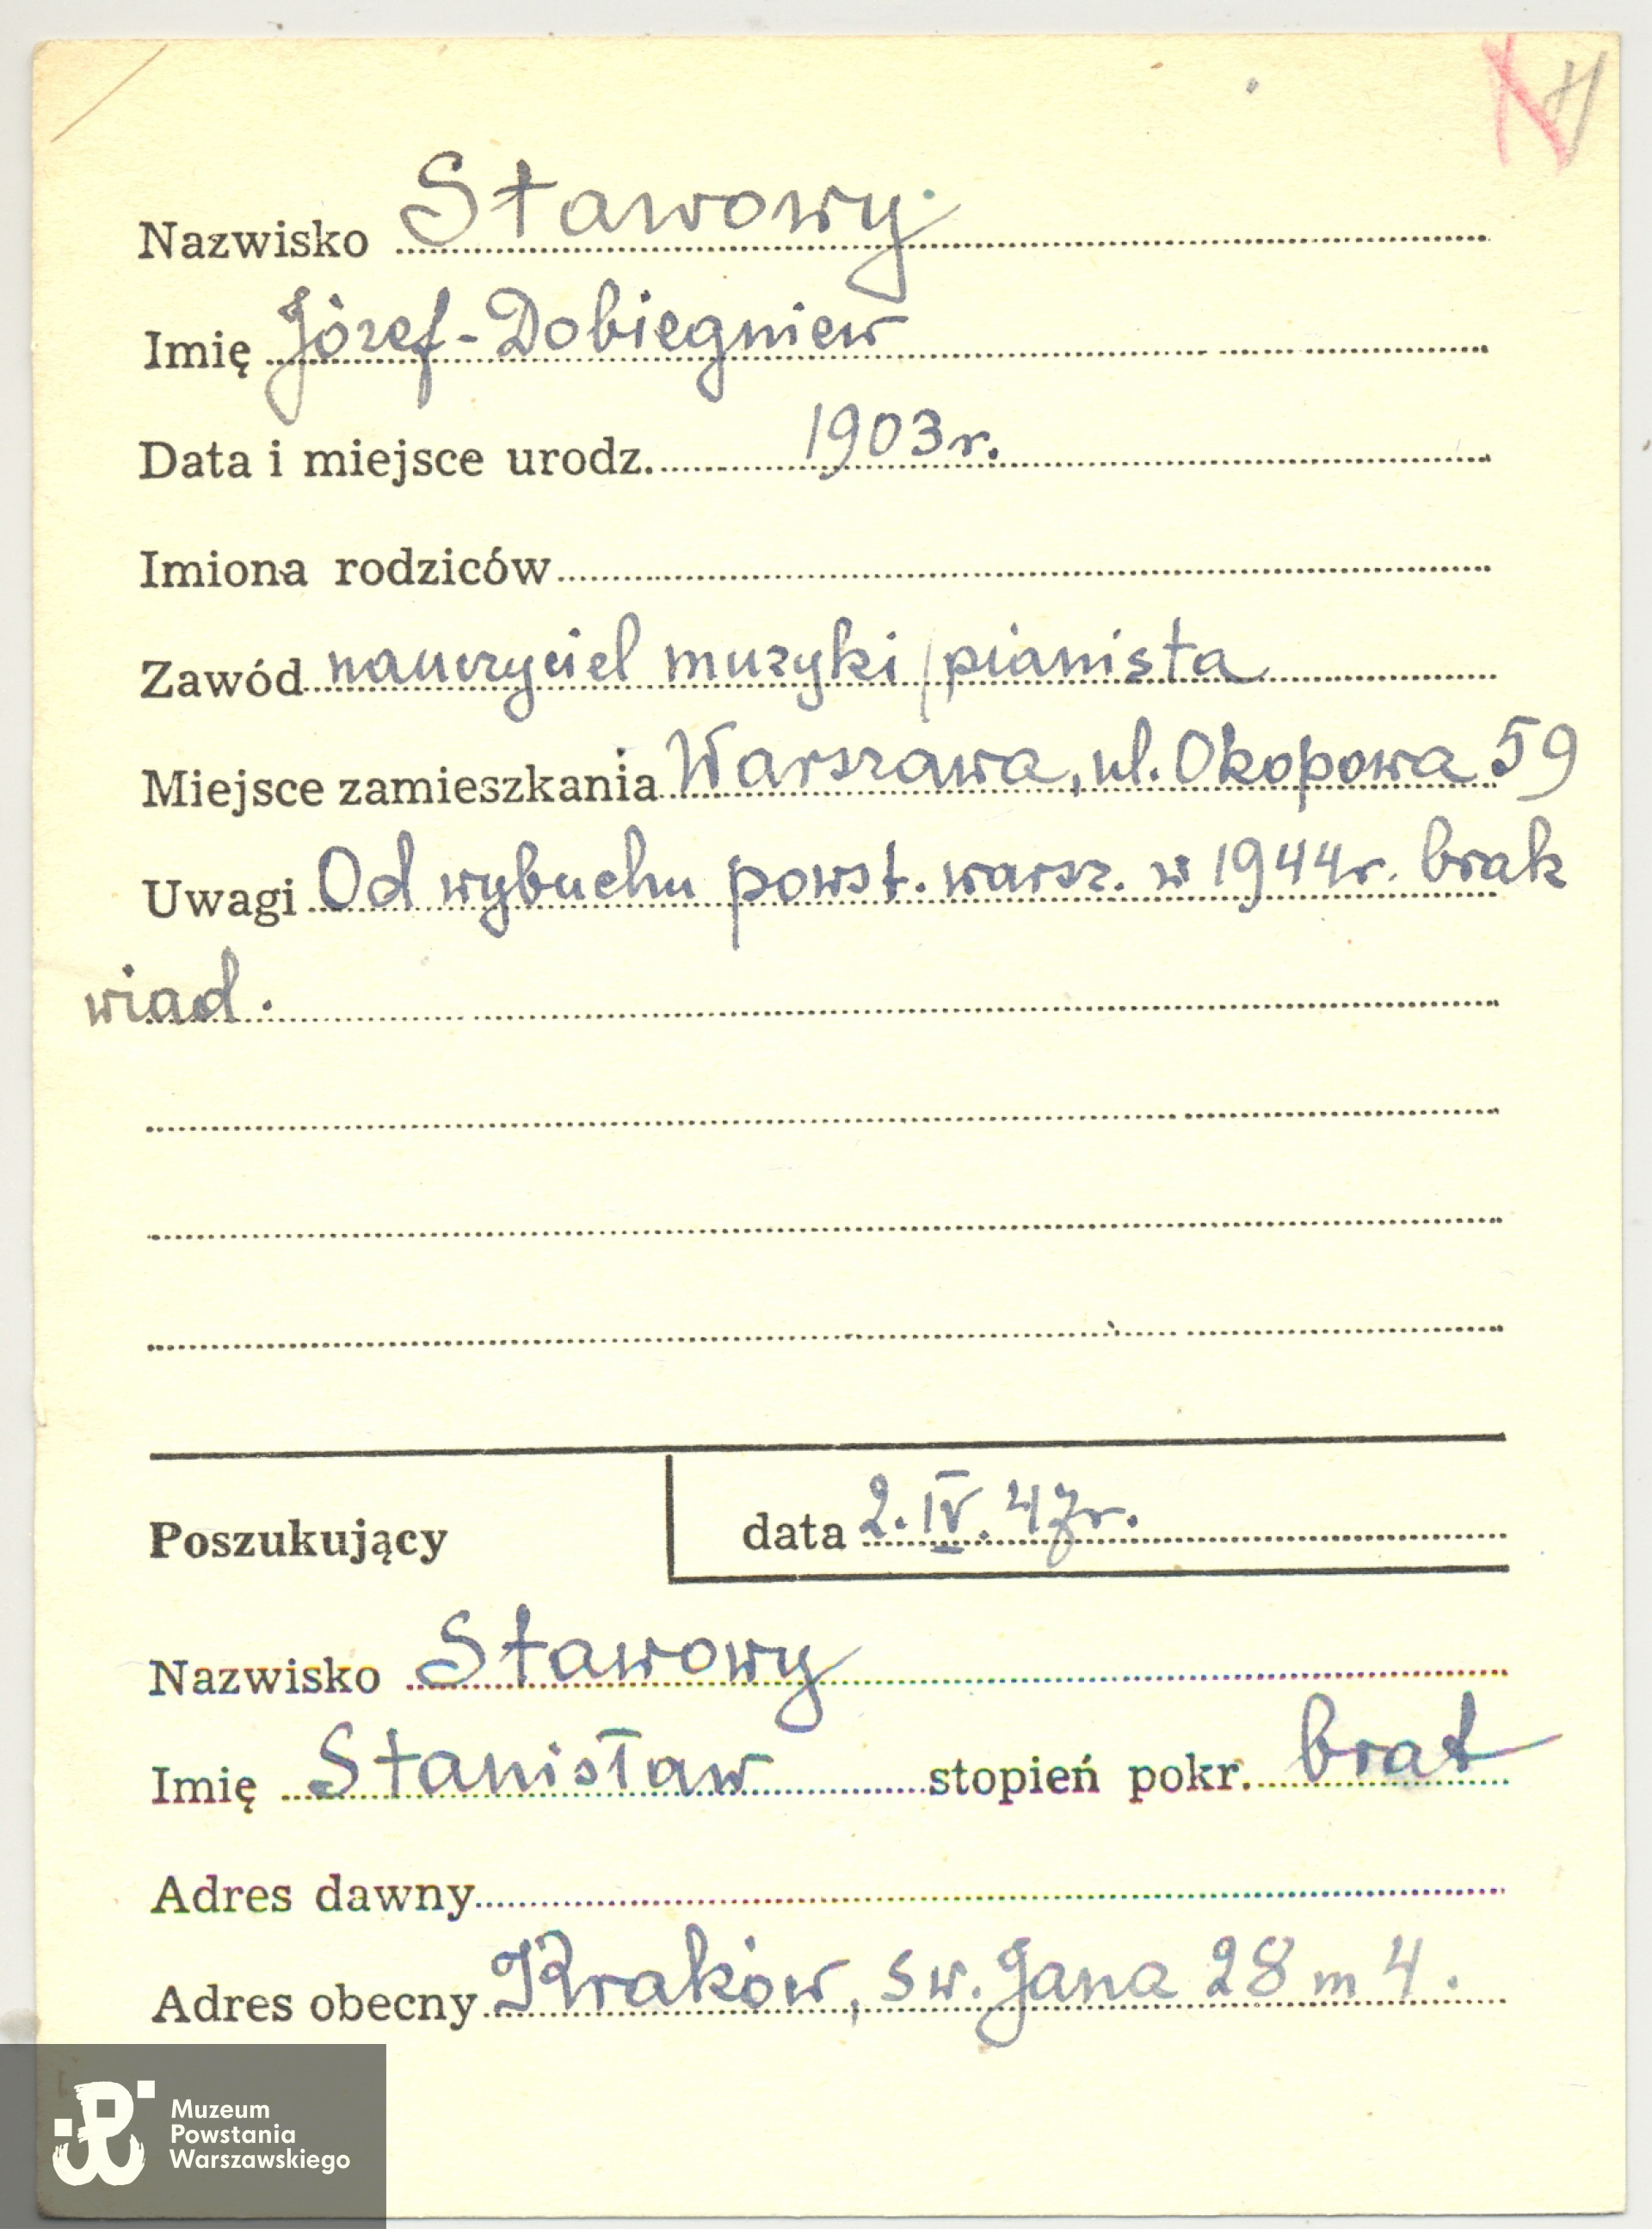 Nazwisko Stawowy
Imię Józef-Dobiegniew
Data i miejsce urodz. 1903r.
Imiona rodziców
Zawód nauczyciel muzyki /pianista
Miejsce zamieszkania Warszawa, ul. Okopowa 59
Uwagi Od wybuchu powst. warsz. w 1944r. brak
wiad.
Poszukujący
data 2.IV.47r.
Nazwisko Stawowy
Imię Stanisław stopień pokr. brat
Adres dawny
Adres obecny Kraków, sw. Jana 28 m 4.
Muzeum
Powstania
Warszawskiego